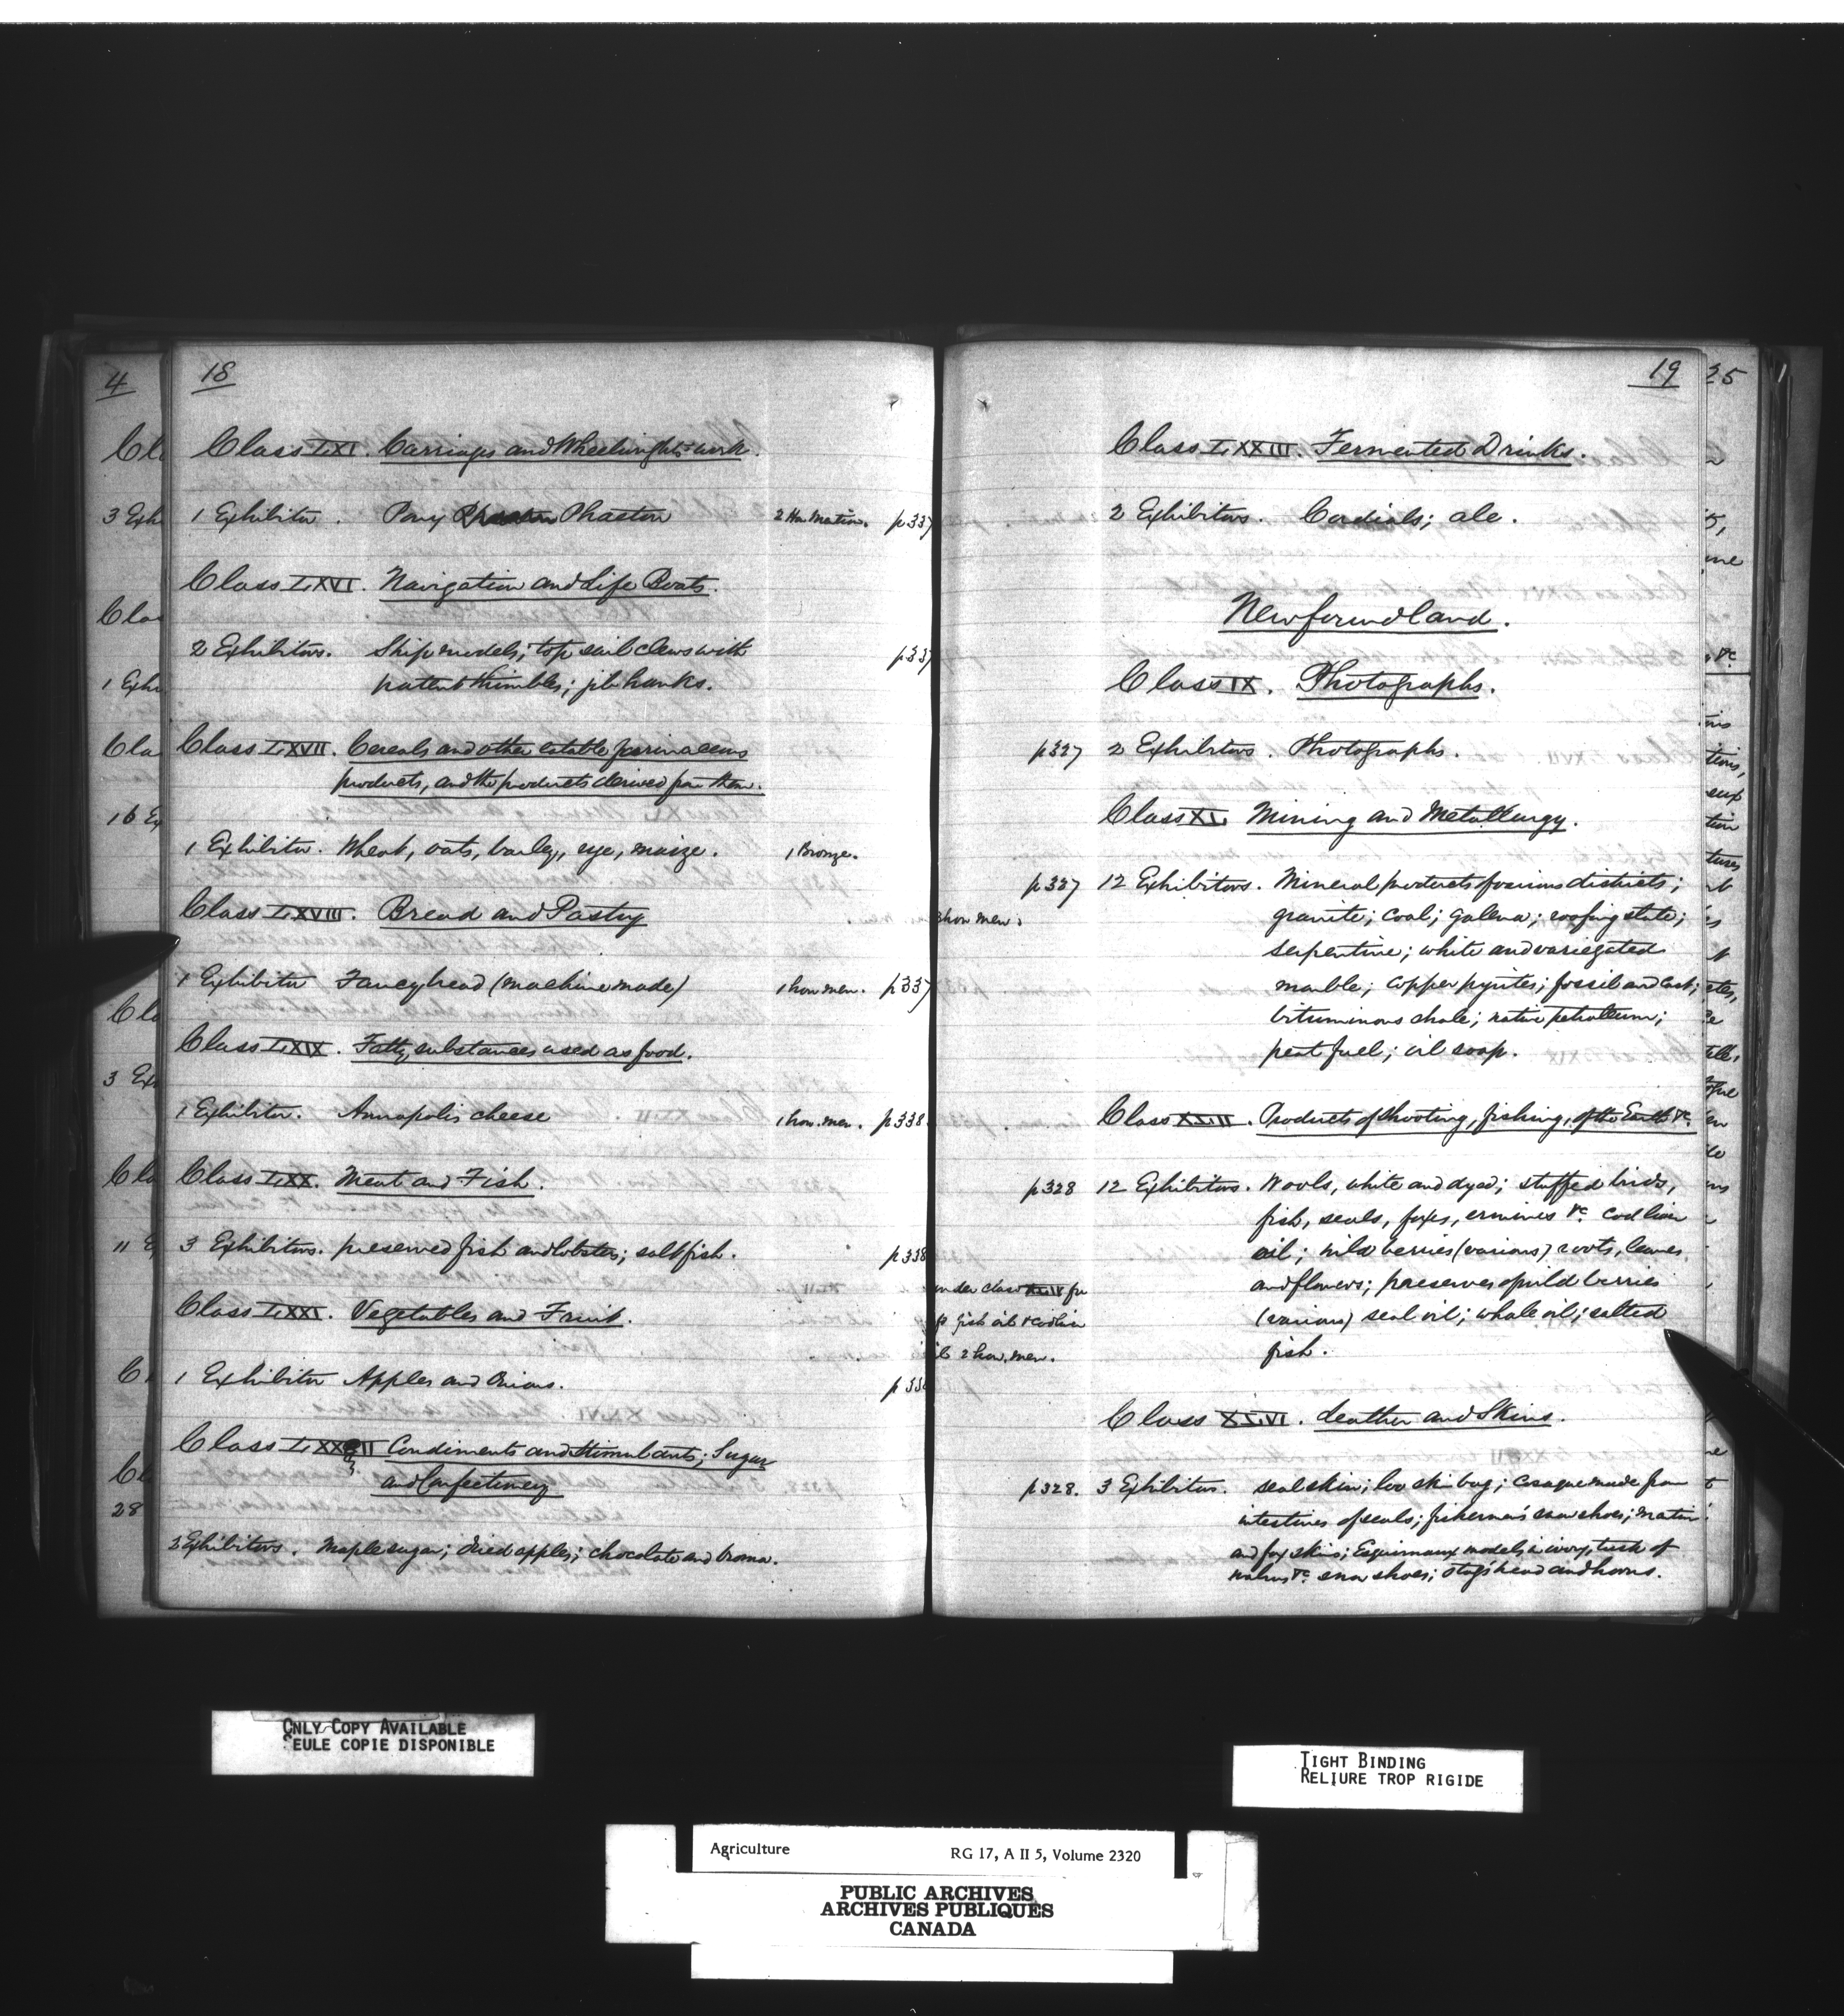 18
Class LXI. Carriages and Wheelwright's work.
1 Exhibitor. Pony Phaeton 2 Hon Mention. p337
Class LXVI. Navigation and Life Boats.
2 Exhibitors. Ship models; top sail clews with p337
patent thimbles; jib hanks.
Class LXVII. Cereals and other eatable farinaceous
products, and the products derived from them.
1 Exhibitor. Wheat, oats, barley, rye, maize. 1 Bronze.
Class LXVIII. Bread and Pastry
1 Exhibitor Fancy bread (machine made) 1 hon men. p337
Class LXIX. Fatty substances used as food.
1 Exhibitor. Annapolis cheese 1 hon. men. p338
Class LXX. Meat and Fish.
3 Exhibitors. preserved fish and lobster; salt fish. p338
Class LXXI. Vegetables and Fruit.
1 Exhibitor Apples and Onions. p338
Class LXXII Condiments and Stimulants; Sugar
and Confectionery
3 Exhibitors. Maple sugar; dried apples; chocolate and broma.
19
Class LXXIII. Fermented Drinks.
2 Exhibitors. Cordials; ale.
Newfoundland.
Class IX. Photographs.
p327 2 Exhibitors. Photographs.
Class XL. Mining and Metallurgy.
p327 12 Exhibitors. Mineral products of various districts;
hon men. granite; coal; galena; roofing slate;
serpentine; white and variegated
marble; copper pyrites; fossil and cast;
bituminous shale; native petroleum;
peat fuel; oil soap.
Class XLII. Products of shooting, fishing, of the Earth &c
p328 12 Exhibitors. Wools, white and dyed; stuffed birds,
fish, seals, foxes, ermines &c. cod liver
oil; wild berries (various) roots, leaves
under class XLII for
and flowers; preserves of wild berries
fish oil & cod liver
(various) seal oil; whale oil; salted
2 hon. men.
fish.
Class XLVI. Leather and Skins.
p328. 3 Exhibitors. seal skin; bag; made from
intestines of seals; fishermen's snow shoes;
and fox skins; Esquimaux models in ivory, tusk of
walrus &c. snow shoes; stag's head and horns.
ONLY COPY AVAILABLE
SEULE COPIE DISPONIBLE
TIGHT BINDING
RELIURE TROP RIGIDE
Agriculture RG 17, A II 5, Volume 2320
PUBLIC ARCHIVES
ARCHIVES PUBLIQUES
CANADA